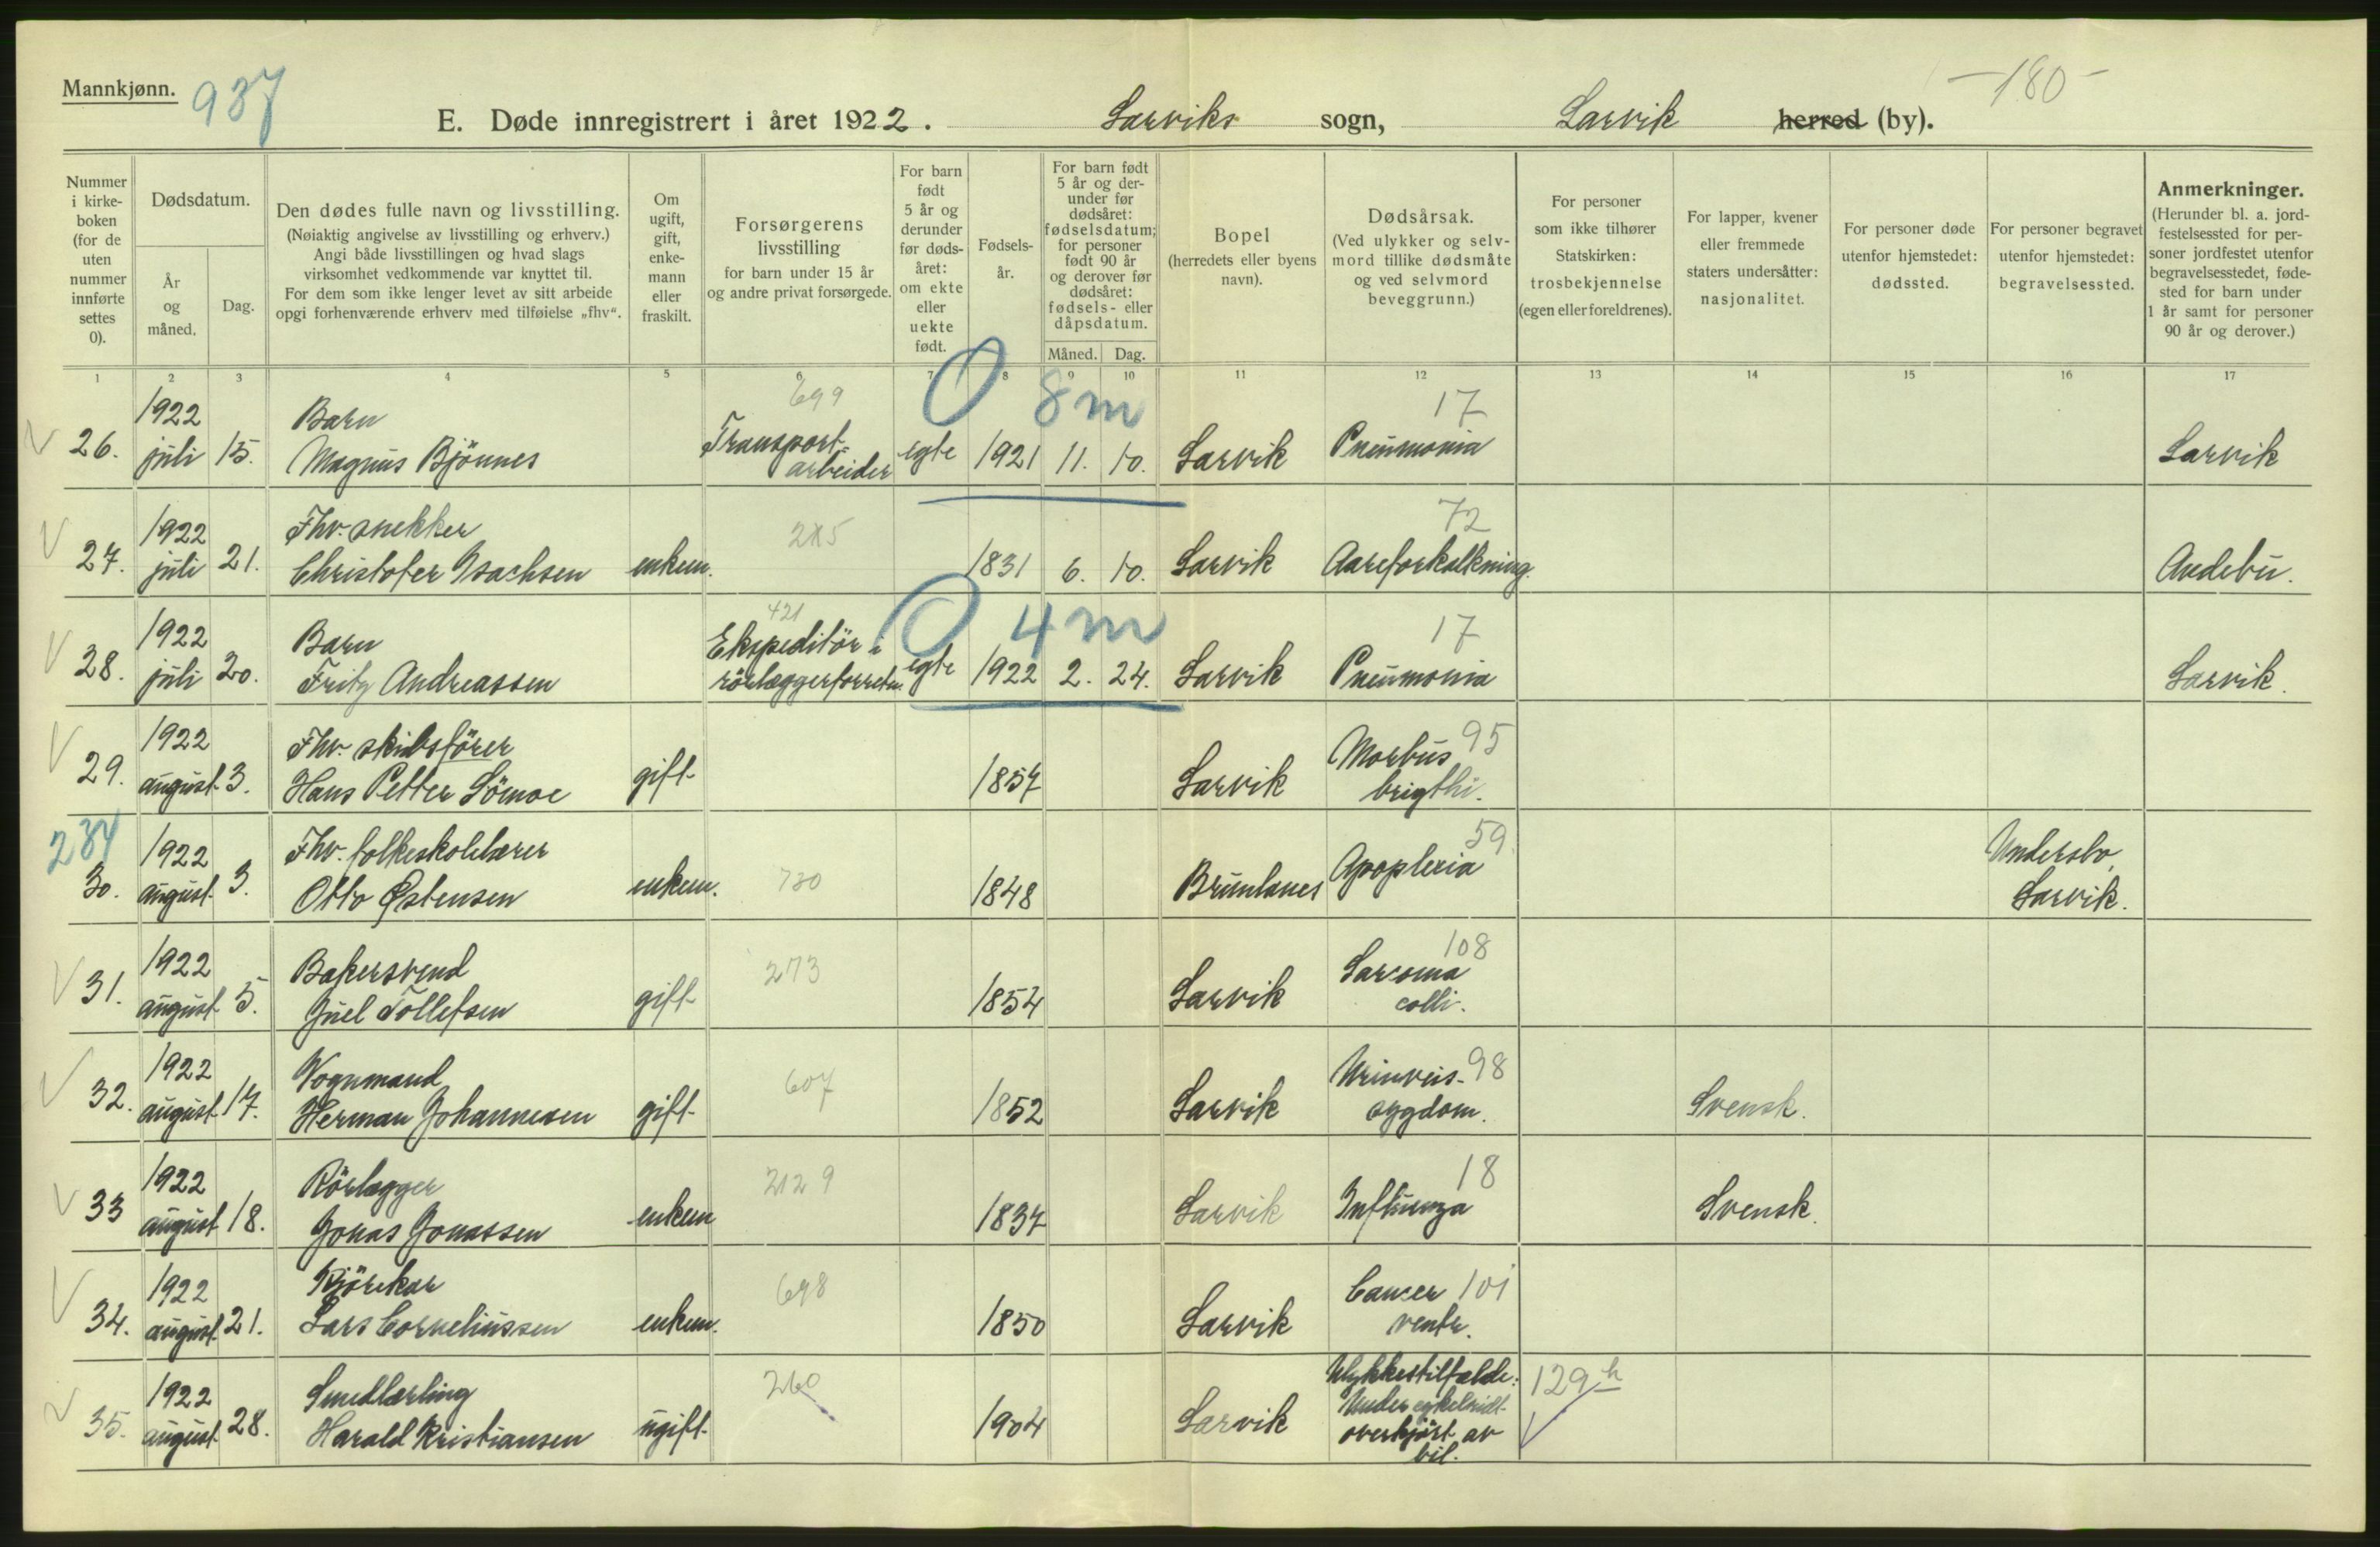 Mannkjønn.
937
-180-
E. Døde innregistrert i året 1922. Larviks sogn, Larvik herred (by).
Nummer
i kirke-
boken
(for de
uten
nummer
innførte
settes
0).
Dødsdatum.
År
og
måned.
Dag.
Den dødes fulle navn og livsstilling.
(Nøiaktig angivelse av livsstilling og erhverv.)
Angi både livsstillingen og hvad slags
virksomhet vedkommende var knyttet til.
For dem som ikke lenger levet av sitt arbeide
opgi forhenværende erhverv med tilføielse „fhv“.
Om
ugift,
gift,
enke-
mann
eller
fraskilt.
Forsørgerens
livsstilling
for barn under 15 år
og andre privat forsørgede.
For barn
født
5 år og
derunder
før døds-
året:
om ekte
eller
uekte
født.
Fødsels-
år.
For barn født
5 år og der-
under før
dødsåret:
fødselsdatum;
for personer
født 90 år
og derover før
dødsåret:
fødsels- eller
dåpsdatum.
Måned. Dag.
Bopel
(herredets eller byens
navn).
Dødsårsak.
(Ved ulykker og selv-
mord tillike dødsmåte
og ved selvmord
beveggrunn.)
For personer
som ikke tilhører
Statskirken:
trosbekjennelse
(egen eller foreldrenes).
For lapper, kvener
eller fremmede
staters undersåtter:
nasjonalitet.
For personer døde
utenfor hjemstedet:
dødssted.
For personer begravet
utenfor hjemstedet:
begravelsessted.
Anmerkninger.
(Herunder bl. a. jord-
festelsessted for per-
soner jordfestet utenfor
begravelsesstedet, føde-
sted for barn under
1 år samt for personer
90 år og derover.)
1 2 3 4 5 6 7 8 9 10 11 12 13 14 15 16 17
1922 Barn 699 0 8 m 17
26. juli 15. Magnus Bjönnes Transport- arbeider egte 1921 11. 10. Larvik Pneumonia Larvik
1922 Fhv. snekker 215 72
27. juli 21. Christofer Isachsen enkem. 1831 6. 10. Larvik Aareforkalkning. Andebu.
1922 Barn 421 Ekspeditör i 0 4 m 17
28. juli 20. Fritz Andreassen rörlæggerforretn. egte 1922 2. 24. Larvik Pneumonia Larvik.
1922 Fhv. skibsförer Morbus 95
29. august 3. Hans Petter Sörnoe gift 1857 Larvik brigthi.
234 1922 Fhv. folkeskolelærer 59 Undersbo,
30. august 3. Otto Østensen enkem. 730 1848 Brunlanes Apoplexia Larvik.
1922 Bakersvend 273 108 Sarcoma
31. august 5. Juel Tollefsen gift 1854 Larvik colli.
1922 Vognmand 607 Urinveis- 98
32. august 17. Herman Johannesen gift 1852 Larvik sygdom. Svensk.
1922 Rörlægger 2129 18
33 august 18. Jonas Jonassen enkem 1837 Larvik Influenza Svensk.
1922 Kjörekar 698 Cancer 101
34. august 21. Lars Corneliussen enkem. 1850 Larvik ventr.
1922 Smedlærling 260 Ulykkestilfælde: 129 h
Under cykelridt
35. august 28. Harald Kristiansen ugift 1904 Larvik overkjört av
bil.